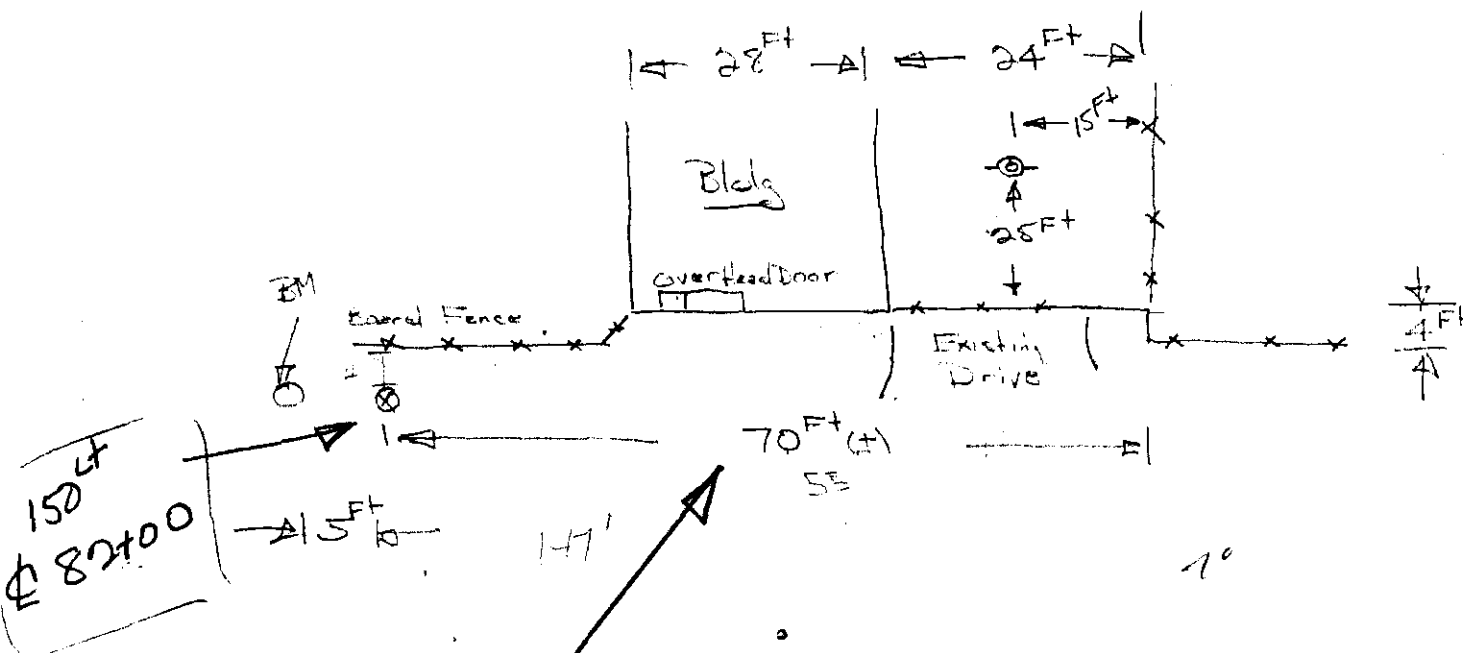 28 Ft
24 Ft
15 Ft
Bldg
25 Ft
OverHead Door
BM
Board Fence
Existing
Drive
4 Ft
70 Ft (±)
150 Lt
℄ 82+00
5 Ft